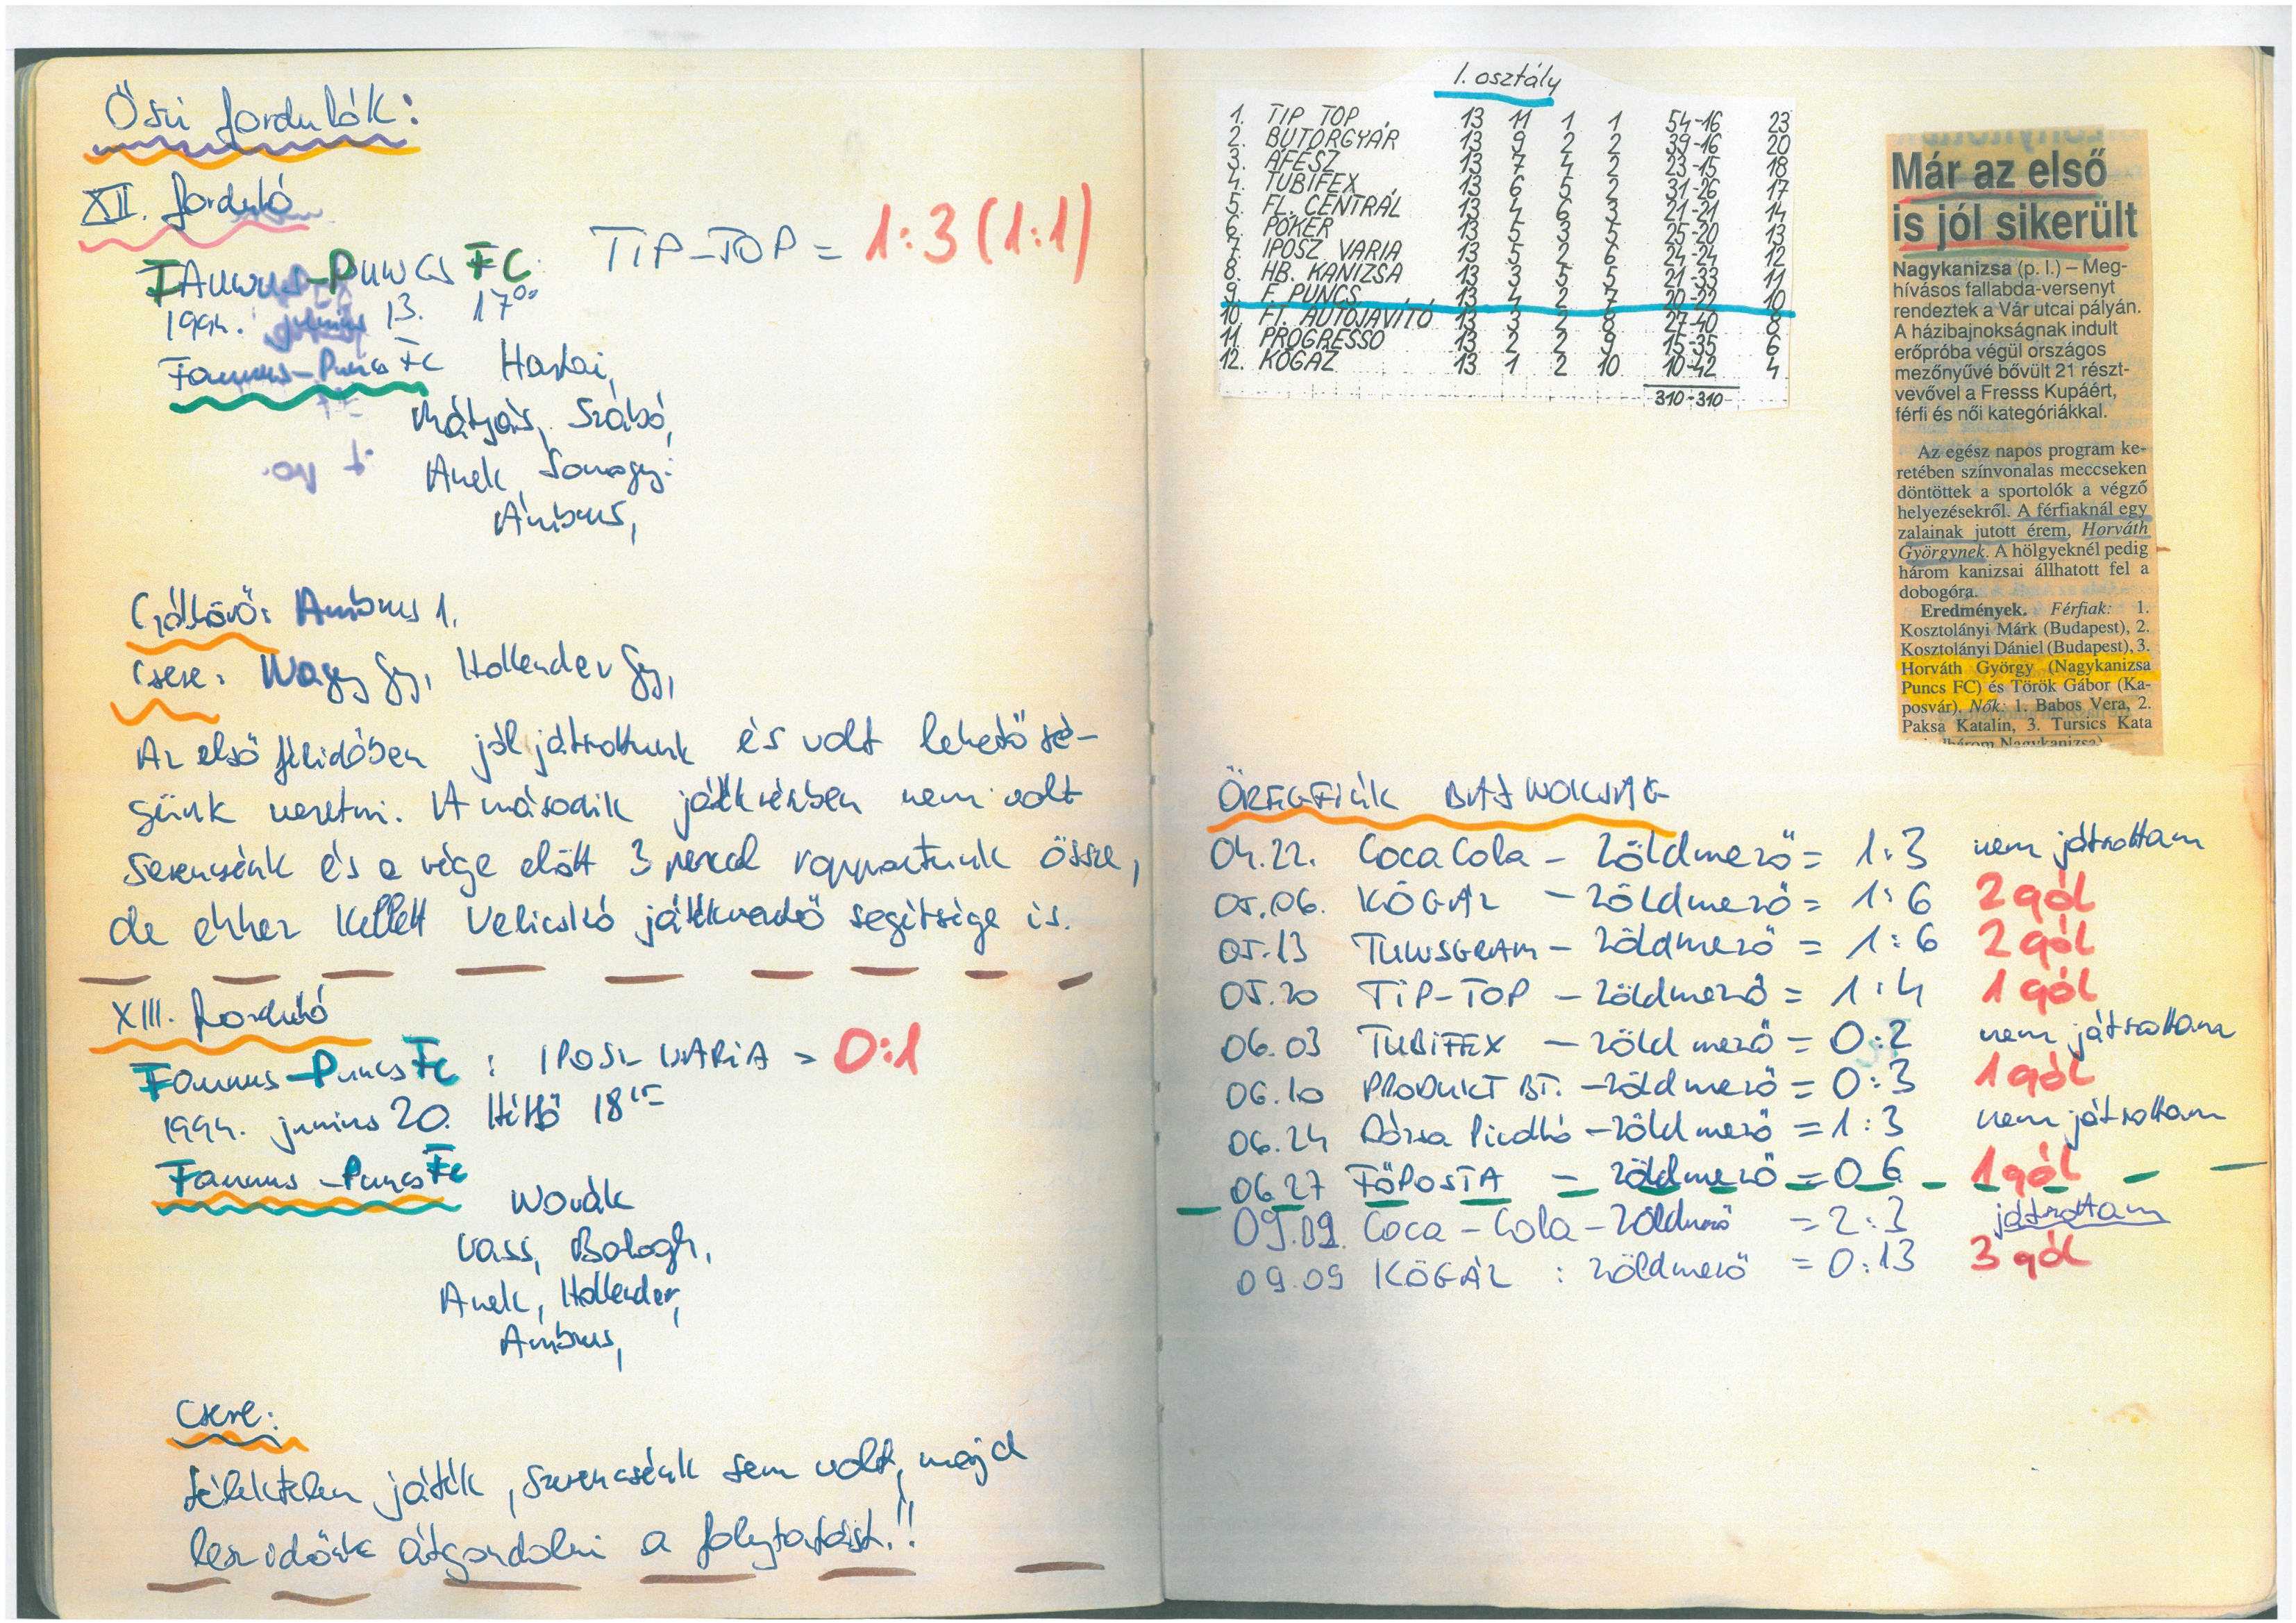 Őszi fordulók:
XII. forduló
FAUNUS-PUNCS FC TIP-TOP = 1:3 (1:1)
1994. június 13. 17⁰⁰
Faunus-Puncs FC
Mátyás, Szabó,
Anek Somogyi
Ambrus,
Góllövő: Ambrus 1.
Csere: Nagy Gy, Hollender Gy,
Az első félidőben jól játszottunk és volt lehetősé-
günk vezetni. A második játékrészben nem volt
szerencsénk és a vége előtt 3 perccel roppantunk össze,
de ehhez kellett Velicskó játékvezető segítsége is.
XIII. forduló
Faunus-Puncs FC : IPOSZ VARIA = 0:1
1994. junius 20. Hétfő 18¹⁵
Faunus-Puncs FC
Novák
Vass, Balogh,
Anek, Hollender,
Ambrus,
Csere:
Lélektelen játék, szerencsénk sem volt, majd
lesz időnk átgondolni a folytatást.!!
I. osztály
1. TIP TOP 13 11 1 1 54-16 23
2. BUTORGYÁR 13 9 2 2 39-16 20
3. ÁFÉSZ 13 7 4 2 23-15 18
4. TUBIFEX 13 6 5 2 31-26 17
5. FL. CENTRÁL 13 4 6 3 21-21 14
6. PÓKER 13 5 3 5 25-20 13
7. IPOSZ VARIA 13 5 2 6 24-24 12
8. HB. KANIZSA 13 3 5 5 21-33 11
9. F. PUNCS 13 4 2 7 20-22 10
10. FT. AUTÓJAVÍTÓ 13 3 2 8 27-40 8
11. PROGRESSO 13 2 2 9 15-35 6
12. KÖGÁZ 13 1 2 10 10-42 4
310-310
Már az első
is jól sikerült
Nagykanizsa (p. l.) – Meg-
hívásos fallabda-versenyt
rendeztek a Vár utcai pályán.
A házibajnokságnak indult
erőpróba végül országos
mezőnyűvé bővült 21 részt-
vevővel a Fresss Kupáért,
férfi és női kategóriákkal.
Az egész napos program ke-
retében színvonalas meccseken
döntöttek a sportolók a végző
helyezésekről. A férfiaknál egy
zalainak jutott érem, Horváth
Györgynek. A hölgyeknél pedig
három kanizsai állhatott fel a
dobogóra.
Eredmények. Férfiak: 1.
Kosztolányi Márk (Budapest), 2.
Kosztolányi Dániel (Budapest), 3.
Horváth György (Nagykanizsa
Puncs FC) és Török Gábor (Ka-
posvár). Nők: 1. Babos Vera, 2.
Paksa Katalin, 3. Tursics Kata
(három Nagykanizsa)
ÖREGFIÚK BAJNOKSÁG
04.22. Coca Cola – Zöldmező = 1:3 nem játszottam
05.06. KÖGÁZ – Zöldmező = 1:6 2 gól
05.13 TUNSGRAM – Zöldmező = 1:6 2 gól
05.20 TIP-TOP – Zöldmező = 1:4 1 gól
06.03 TUBIFEX – Zöld mező = 0:2 nem játszottam
06.10 PRODUKT BT. – Zöldmező = 0:3 1 gól
06.24 Rózsa – Zöld mező = 1:3 nem játszottam
06.27 FŐPOSTA – Zöldmező = 0 6 1 gól
09.02. Coca-Cola – Zöldmező = 2:3 játszottam
09.09 KÖGÁZ : Zöldmező = 0:13 3 gól